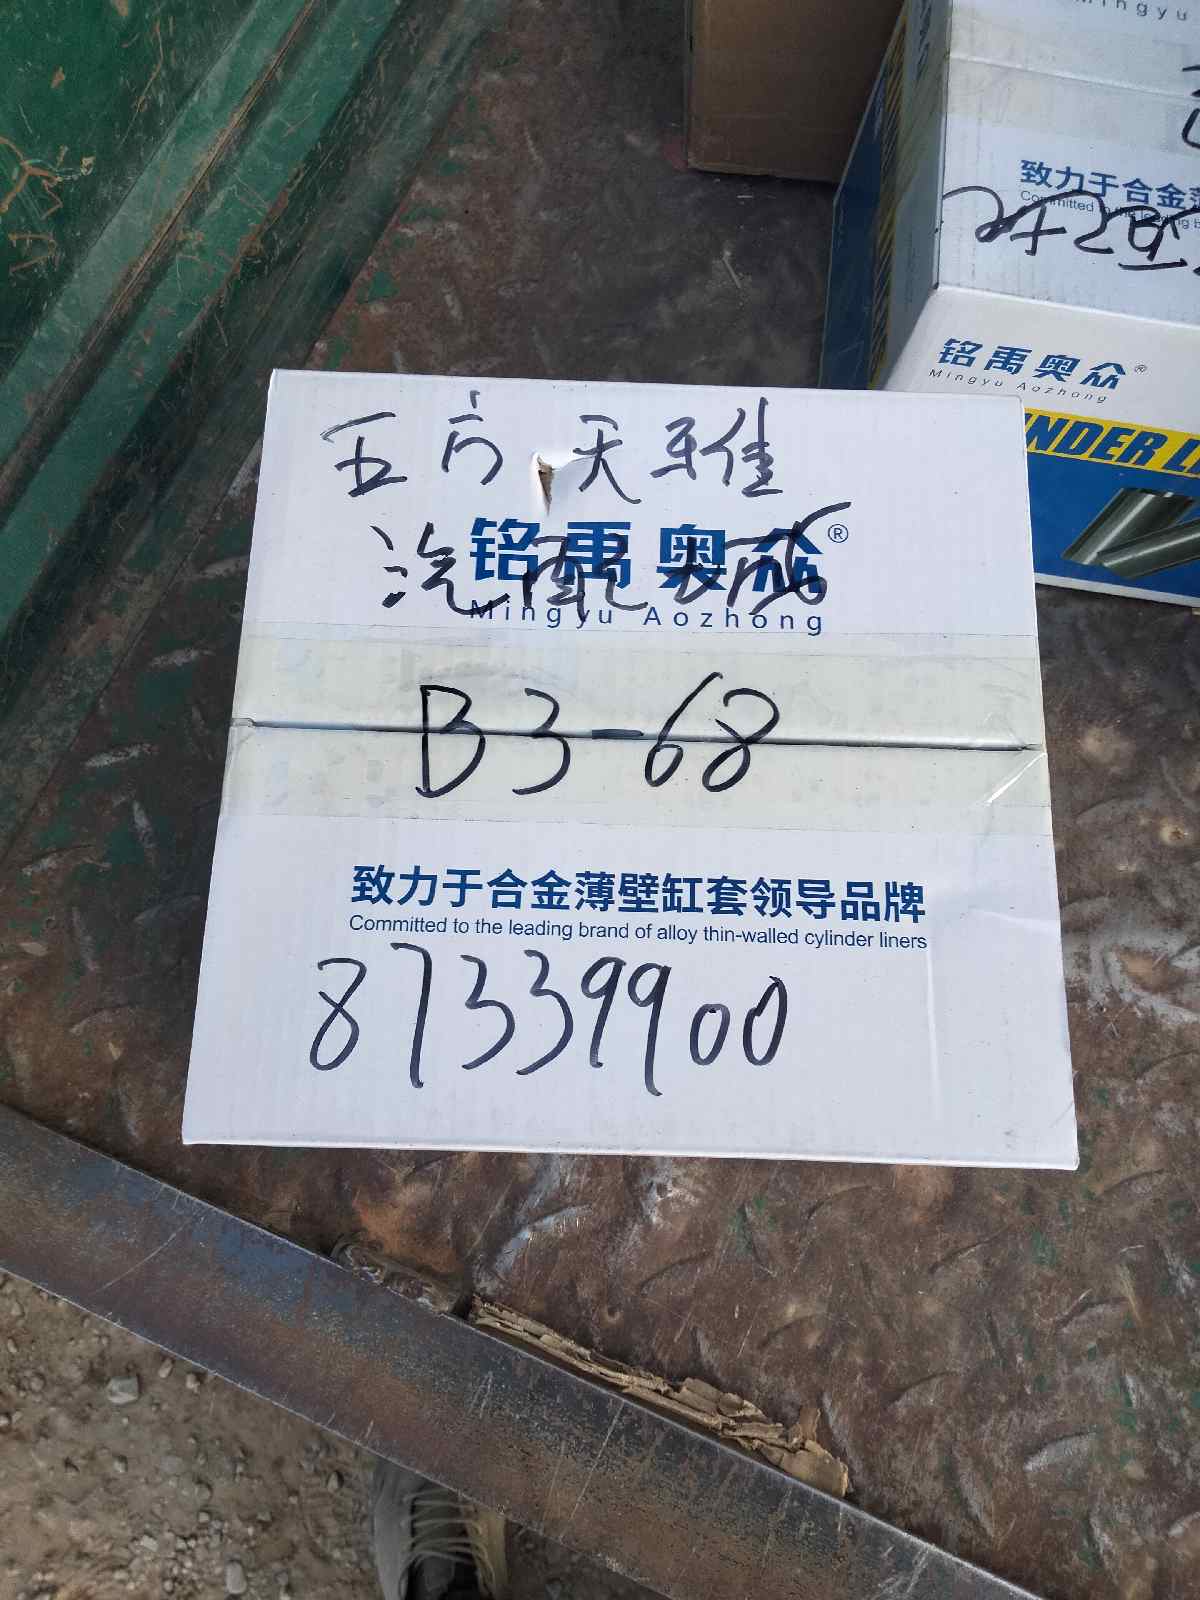 Mingyu
致力于合金薄
Committed to the leading b
铭禹奥众®
Mingyu Aozhong
INDER L
五方天雅
铭禹奥众®
汽配城
Mingyu Aozhong
B3-68
致力于合金薄壁缸套领导品牌
Committed to the leading brand of alloy thin-walled cylinder liners
87339900